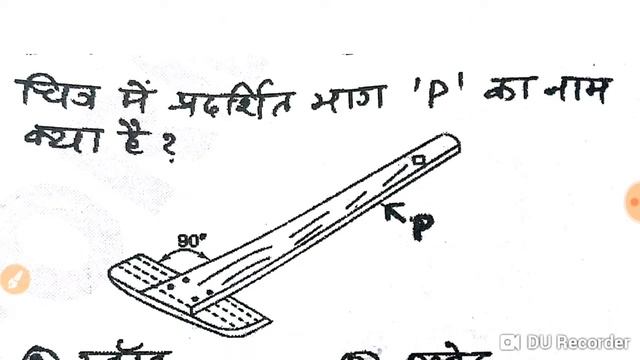 चित्र में प्रदर्शित भाग 'P' का नाम
क्या है?
90°
P
DU Recorder